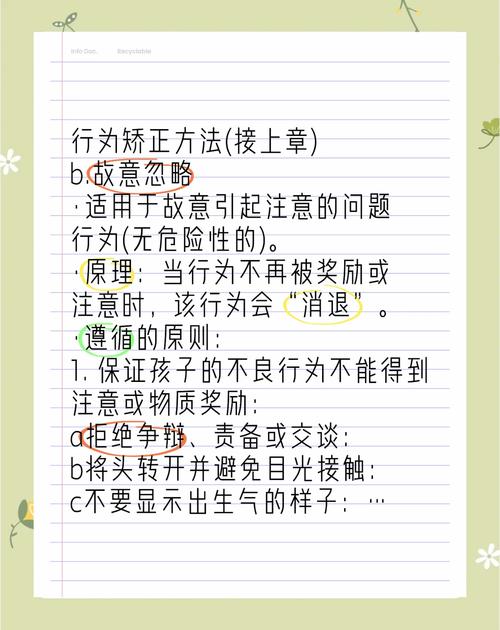 Info Doc. Recyclable
行为矫正方法(接上章)
b.故意忽略
·适用于故意引起注意的问题
行为(无危险性的)。
·原理：当行为不再被奖励或
注意时，该行为会“消退”。
·遵循的原则：
1. 保证孩子的不良行为不能得到
注意或物质奖励：
a拒绝争辩、责备或交谈：
b将头转开并避免目光接触：
c不要显示出生气的样子：…